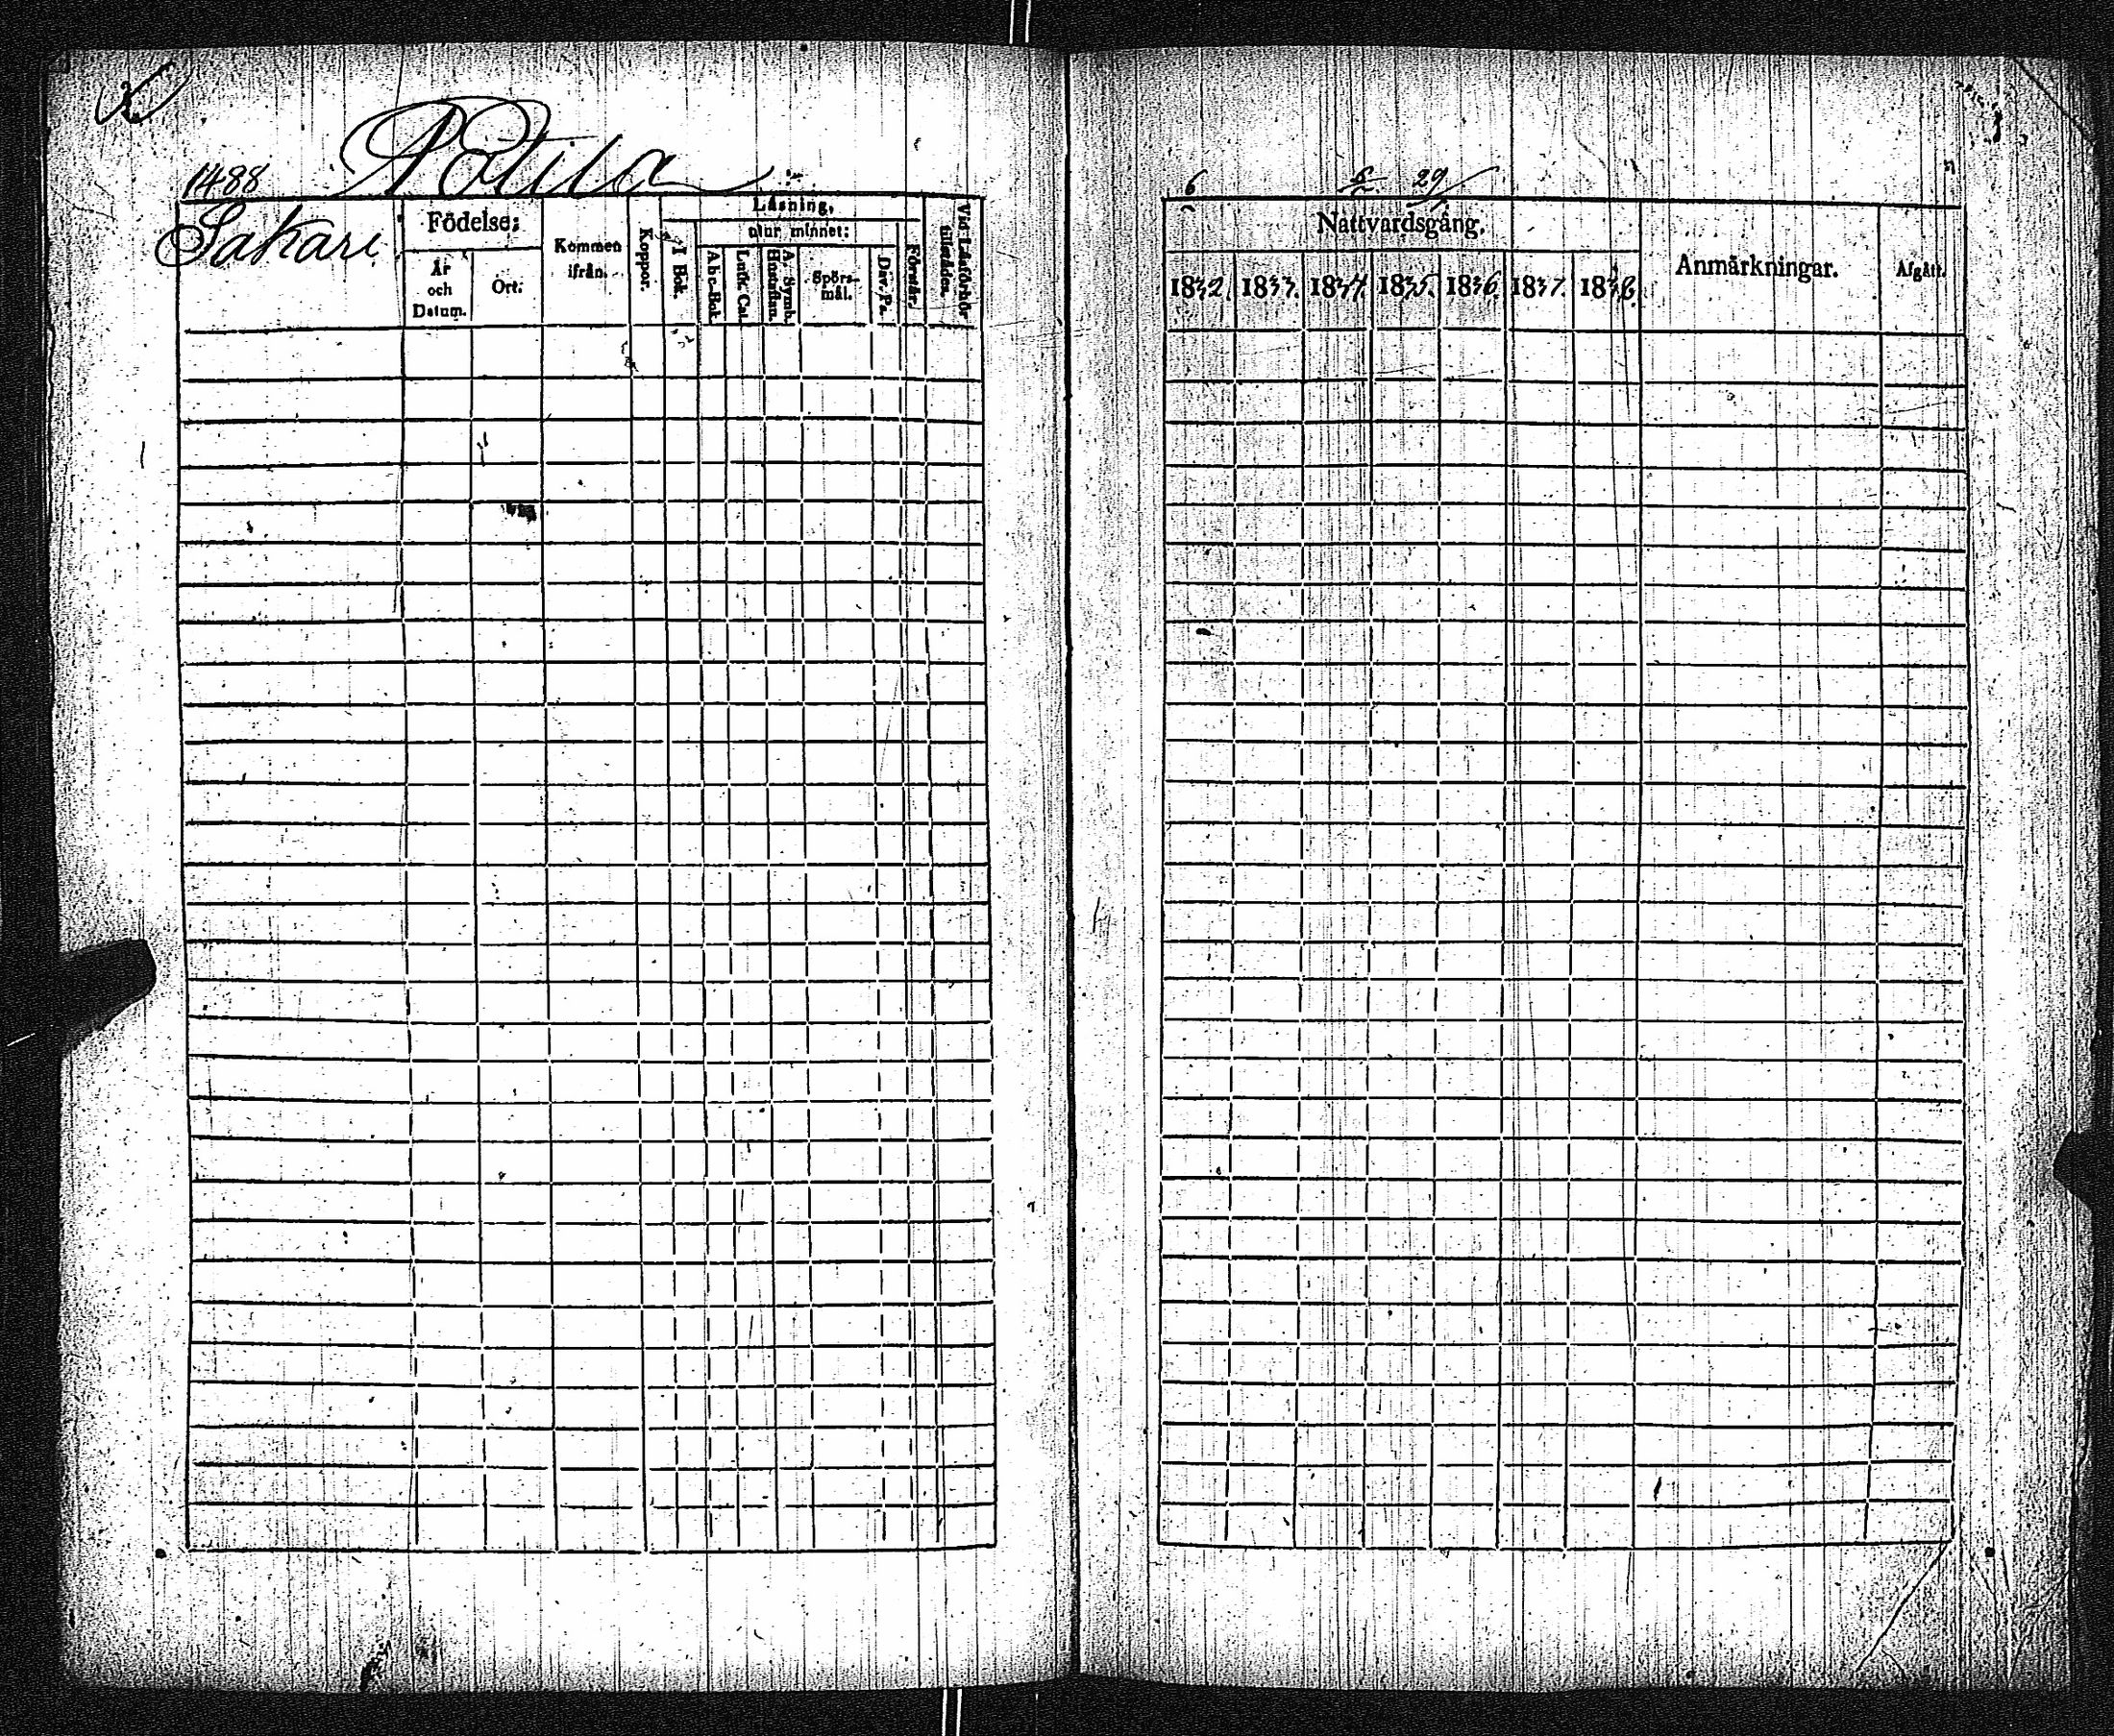 1488
Potila
Sakari
Födelse:
År och Datum.
Ort.
Kommen ifrån.
Koppor.
Läsning,
I Bok.
utur minnet:
Abc-Bok.
Luth. Cat.
A. Symb. Hustaflan.
Spörs-mål.
Dav. Ps.
Förstår.
Vid Läsförhör tillstädes.
6
29
Nattvardsgång.
1832.
1833.
1834.
1835.
1836.
1837.
1838.
Anmärkningar.
Afgått.